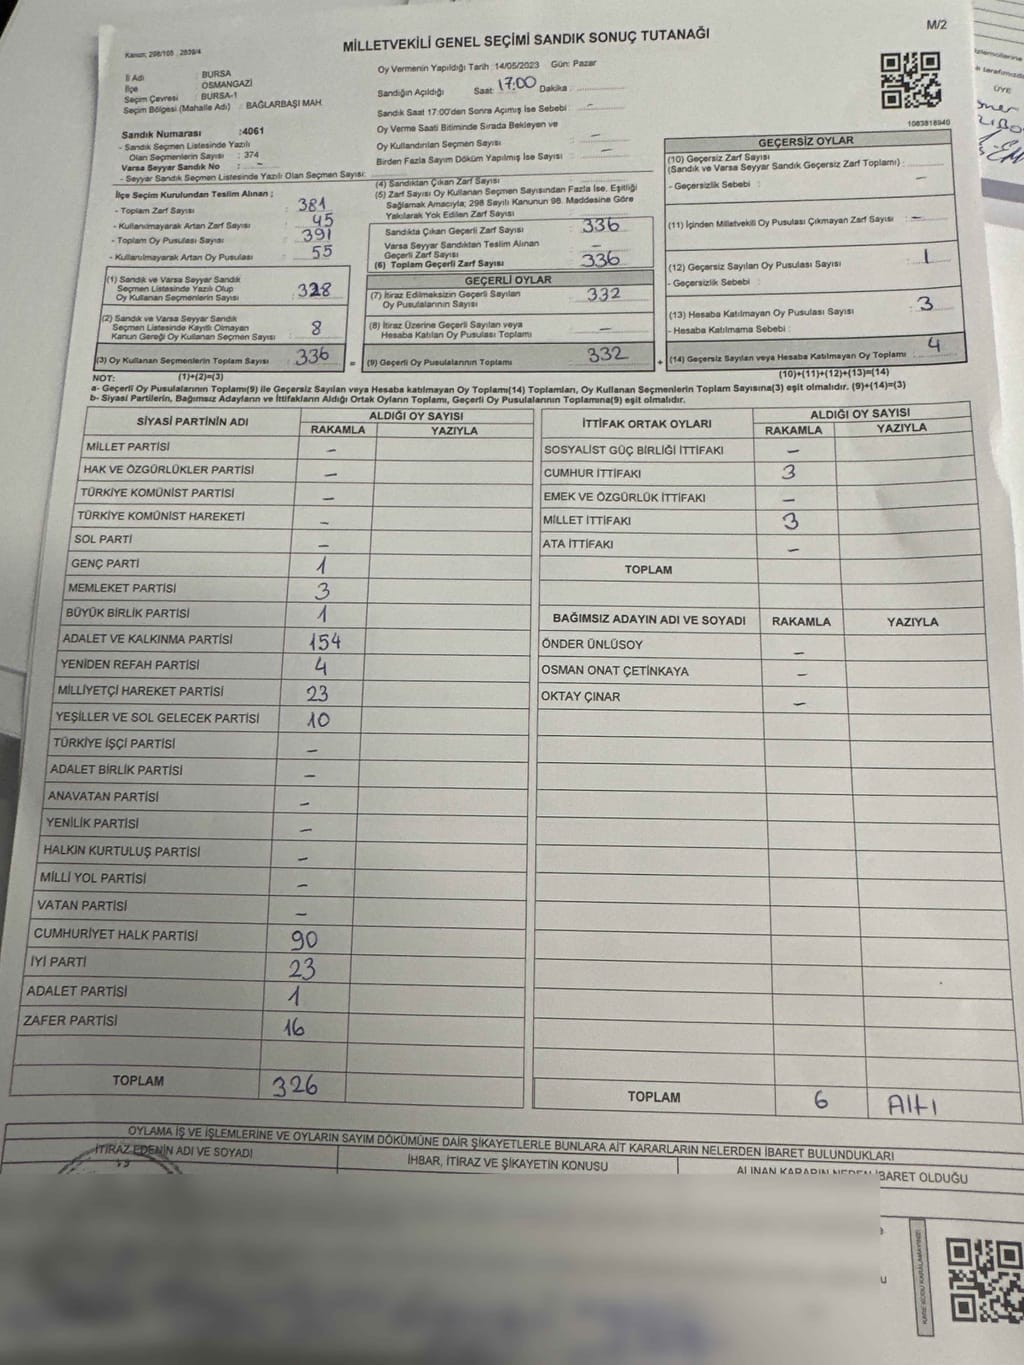 M/2
Kanun; 298/105 , 2839/4
MİLLETVEKİLİ GENEL SEÇİMİ SANDIK SONUÇ TUTANAĞI
İl Adı : BURSA
İlçe : OSMANGAZİ
Seçim Çevresi : BURSA-1
Seçim Bölgesi (Mahalle Adı) : BAĞLARBAŞI MAH.
Oy Vermenin Yapıldığı Tarih :14/05/2023 Gün: Pazar
Sandığın Açıldığı Saat: 17:00 Dakika :
Sandık Saat 17:00'den Sonra Açımış İse Sebebi : -
Oy Verme Saati Bitiminde Sırada Bekleyen ve
Oy Kullandırılan Seçmen Sayısı -
Birden Fazla Sayım Döküm Yapılmış İse Sayısı -
1083818940
Sandık Numarası :4061
- Sandık Seçmen Listesinde Yazılı
Olan Seçmenlerin Sayısı : 374
Varsa Seyyar Sandık No : -
- Seyyar Sandık Seçmen Listesinde Yazılı Olan Seçmen Sayısı:
İlçe Seçim Kurulundan Teslim Alınan ;
- Toplam Zarf Sayısı : 381
- Kullanılmayarak Artan Zarf Sayısı : 45
- Toplam Oy Pusulası Sayısı : 391
- Kullanılmayarak Artan Oy Pusulası : 55
(1) Sandık ve Varsa Seyyar Sandık
Seçmen Listesinde Yazılı Olup
Oy Kullanan Seçmenlerin Sayısı : 328
(2) Sandık ve Varsa Seyyar Sandık
Seçmen Listesinde Kayıtlı Olmayan
Kanun Gereği Oy Kullanan Seçmen Sayısı : 8
(3) Oy Kullanan Seçmenlerin Toplam Sayısı : 336
(4) Sandıktan Çıkan Zarf Sayısı
(5) Zarf Sayısı Oy Kullanan Seçmen Sayısından Fazla İse, Eşitliği
Sağlamak Amacıyla; 298 Sayılı Kanunun 98. Maddesine Göre
Yakılarak Yok Edilen Zarf Sayısı
Sandıkta Çıkan Geçerli Zarf Sayısı 336
Varsa Seyyar Sandıktan Teslim Alınan
Geçerli Zarf Sayısı -
(6) Toplam Geçerli Zarf Sayısı 336
GEÇERLİ OYLAR
(7) İtiraz Edilmeksizin Geçerli Sayılan
Oy Pusulalarının Sayısı : 332
(8) İtiraz Üzerine Geçerli Sayılan veya
Hesaba Katılan Oy Pusulası Toplamı : -
= (9) Geçerli Oy Pusulalarının Toplamı : 332
GEÇERSİZ OYLAR
(10) Geçersiz Zarf Sayısı
(Sandık ve Varsa Seyyar Sandık Geçersiz Zarf Toplamı) : -
- Geçersizlik Sebebi :
(11) İçinden Milletvekili Oy Pusulası Çıkmayan Zarf Sayısı : -
(12) Geçersiz Sayılan Oy Pusulası Sayısı : 1
- Geçersizlik Sebebi :
(13) Hesaba Katılmayan Oy Pusulası Sayısı : 3
- Hesaba Katılmama Sebebi :
+ (14) Geçersiz Sayılan veya Hesaba Katılmayan Oy Toplamı : 4
NOT: (1)+(2)=(3)
(10)+(11)+(12)+(13)=(14)
a- Geçerli Oy Pusulalarının Toplamı(9) ile Geçersiz Sayılan veya Hesaba katılmayan Oy Toplamı(14) Toplamları, Oy Kullanan Seçmenlerin Toplam Sayısına(3) eşit olmalıdır. (9)+(14)=(3)
b- Siyasi Partilerin, Bağımsız Adayların ve İttifakların Aldığı Ortak Oyların Toplamı, Geçerli Oy Pusulalarının Toplamına(9) eşit olmalıdır.
SİYASİ PARTİNİN ADI ALDIĞI OY SAYISI
RAKAMLA YAZIYLA
MİLLET PARTİSİ -
HAK VE ÖZGÜRLÜKLER PARTİSİ -
TÜRKİYE KOMÜNİST PARTİSİ -
TÜRKİYE KOMÜNİST HAREKETİ -
SOL PARTİ -
GENÇ PARTİ 1
MEMLEKET PARTİSİ 3
BÜYÜK BİRLİK PARTİSİ 1
ADALET VE KALKINMA PARTİSİ 154
YENİDEN REFAH PARTİSİ 4
MİLLİYETÇİ HAREKET PARTİSİ 23
YEŞİLLER VE SOL GELECEK PARTİSİ 10
TÜRKİYE İŞÇİ PARTİSİ -
ADALET BİRLİK PARTİSİ -
ANAVATAN PARTİSİ -
YENİLİK PARTİSİ -
HALKIN KURTULUŞ PARTİSİ -
MİLLİ YOL PARTİSİ -
VATAN PARTİSİ -
CUMHURİYET HALK PARTİSİ 90
İYİ PARTİ 23
ADALET PARTİSİ 1
ZAFER PARTİSİ 16
TOPLAM 326
İTTİFAK ORTAK OYLARI ALDIĞI OY SAYISI
RAKAMLA YAZIYLA
SOSYALİST GÜÇ BİRLİĞİ İTTİFAKI -
CUMHUR İTTİFAKI 3
EMEK VE ÖZGÜRLÜK İTTİFAKI -
MİLLET İTTİFAKI 3
ATA İTTİFAKI -
TOPLAM
BAĞIMSIZ ADAYIN ADI VE SOYADI RAKAMLA YAZIYLA
ÖNDER ÜNLÜSOY -
OSMAN ONAT ÇETİNKAYA -
OKTAY ÇINAR -
TOPLAM 6 Altı
OYLAMA İŞ VE İŞLEMLERİNE VE OYLARIN SAYIM DÖKÜMÜNE DAİR ŞİKAYETLERLE BUNLARA AİT KARARLARIN NELERDEN İBARET BULUNDUKLARI
İTİRAZ EDENİN ADI VE SOYADI
İHBAR, İTİRAZ VE ŞİKAYETİN KONUSU
ALINAN KARARIN NEDEN İBARET OLDUĞU
ÜYE